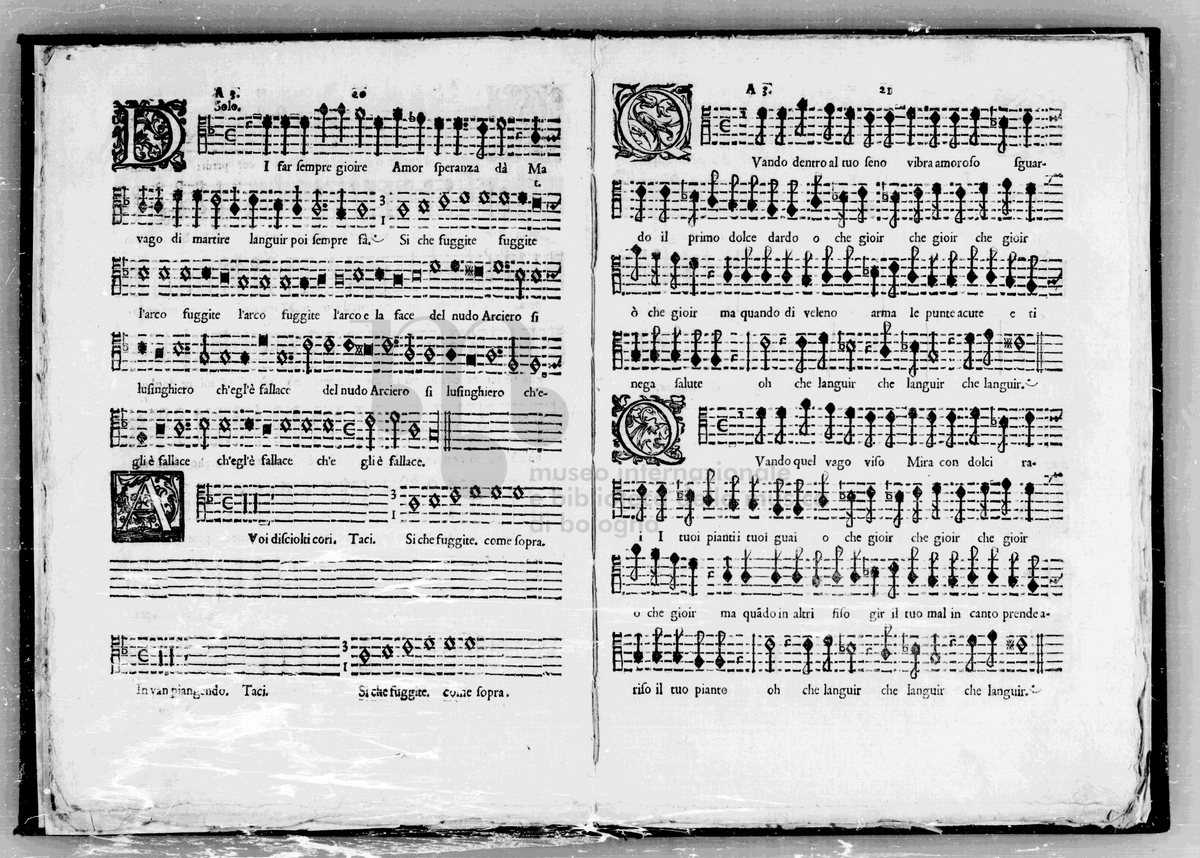 A 3. 20
Solo.
DI far sempre gioire Amor speranza dà Ma
t.
vago di martire languir poi sempre fà. Si che fuggite fuggite
3
1
l'arco fuggite l'arco fuggite l'arco e la face del nudo Arciero si
lusinghiero ch'egl'è fallace del nudo Arciero si lusinghiero ch'e-
gli è fallace ch'egl'è fallace ch'e gli è fallace.
3
1
AVoi disciolti cori. Taci. Si che fuggite. come sopra.
3
1
In van piangendo. Taci. Si che fuggite. come sopra.
A 3. 21
QVando dentro al tuo seno vibra amoroso sguar-
do il primo dolce dardo o che gioir che gioir che gioir
ò che gioir ma quando di veleno arma le punte acute e ti
nega salute oh che languir che languir che languir.
QVando quel vago viso Mira con dolci ra-
i I tuoi pianti i tuoi guai o che gioir che gioir che gioir
o che gioir ma quãdo in altri fiso gir il tuo mal in canto prende a-
riso il tuo pianto oh che languir che languir che languir.
museo internazionale
e biblioteca della musica
di bologna